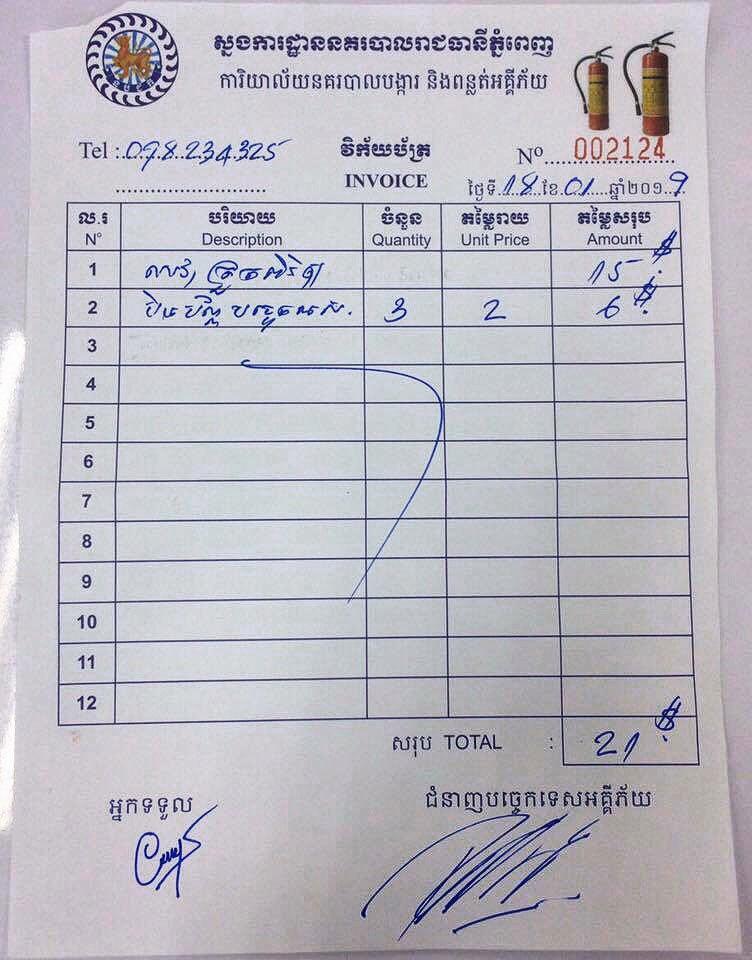 ស្នងការដ្ឋាននគរបាលរាជធានីភ្នំពេញ
ការិយាល័យនគរបាលបង្ការ និងពន្លត់អគ្គីភ័យ
Tel : 078.234325
វិក័យប័ត្រ
INVOICE
Nº 002124
ថ្ងៃទី 18 ខែ 01 ឆ្នាំ២០១9
ល.រ បរិយាយ ចំនួន តម្លៃរាយ តម្លៃសរុប
N° Description Quantity Unit Price Amount
1 15$
2 3 2 6$
3
4
5
6
7
8
9
10
11
12
សរុប TOTAL : 21$
អ្នកទទួល ជំនាញបច្ចេកទេសអគ្គីភ័យ